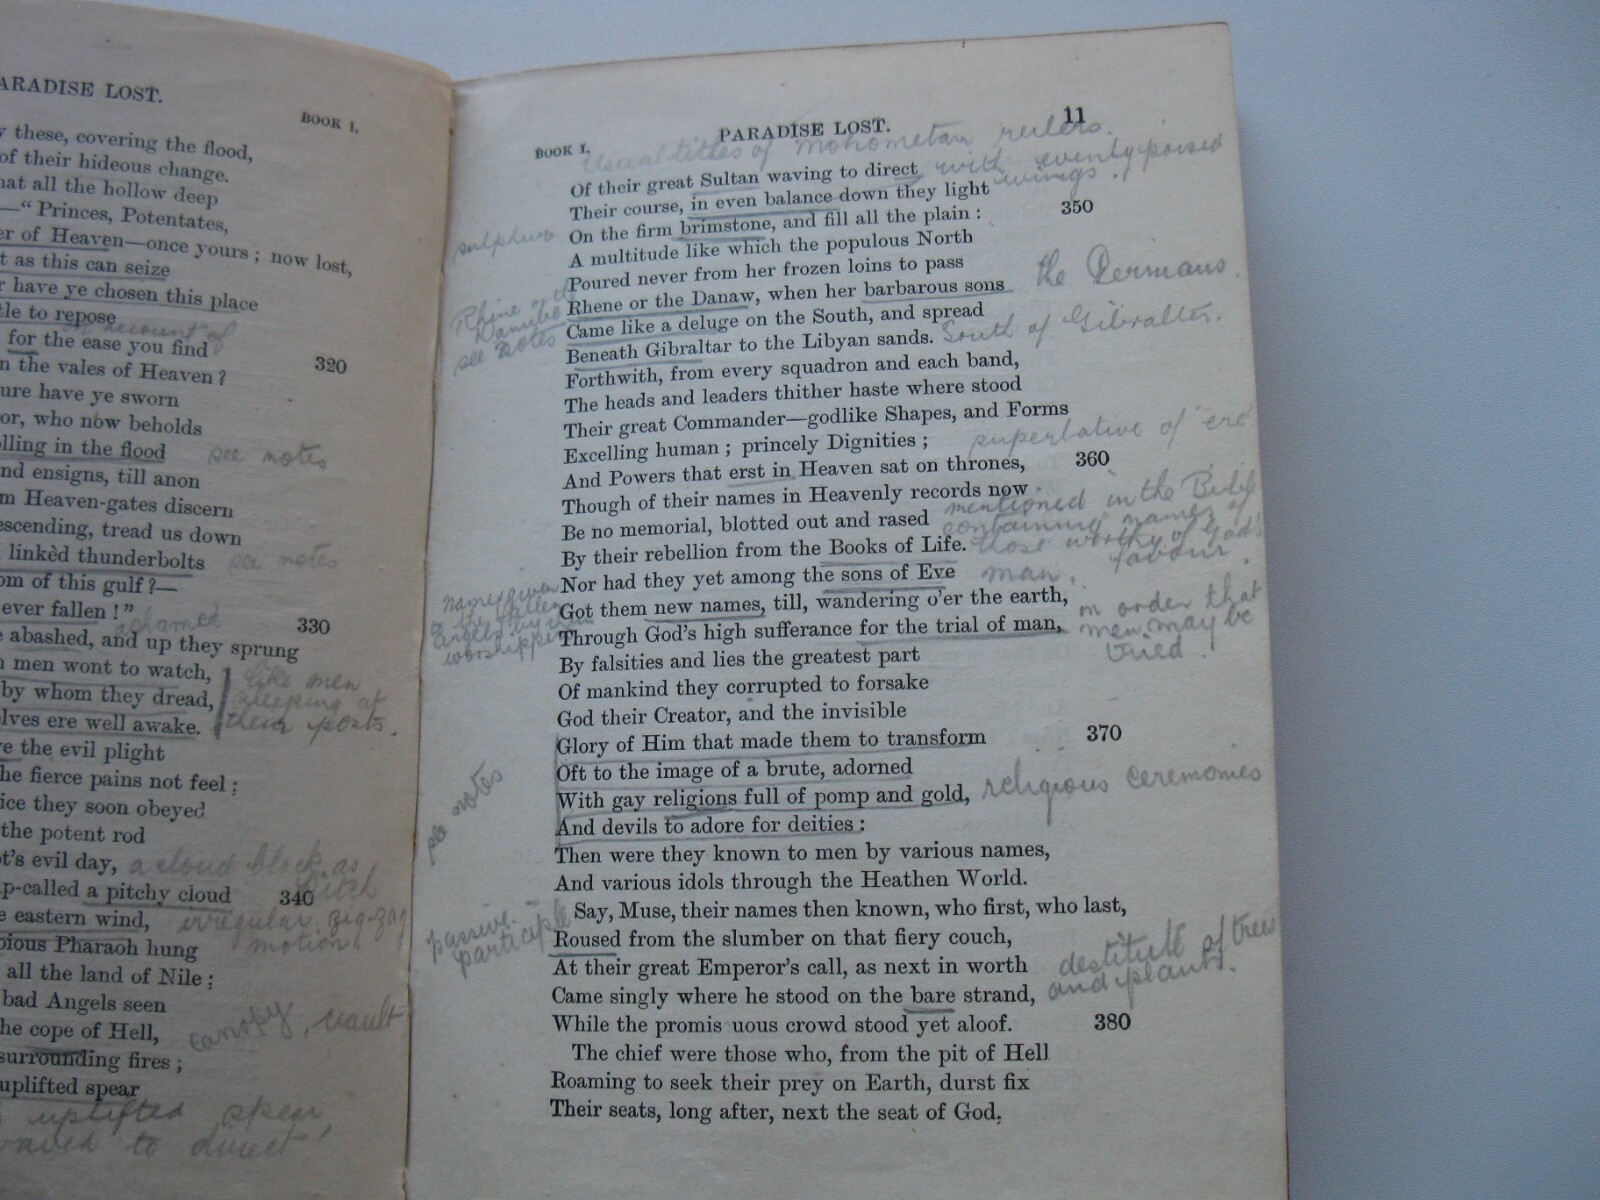 ARADISE LOST.
BOOK I.
these, covering the flood,
of their hideous change.
hat all the hollow deep
—“Princes, Potentates,
er of Heaven—once yours; now lost,
t as this can seize
r have ye chosen this place
tle to repose
on account of
for the ease you find 320
n the vales of Heaven?
ure have ye sworn
or, who now beholds
olling in the flood see notes
nd ensigns, till anon
m Heaven-gates discern
escending, tread us down
linkèd thunderbolts see notes
om of this gulf?—
ever fallen!” 330
ashamed
e abashed, and up they sprung
n men wont to watch, like men
by whom they dread, sleeping at
elves ere well awake. their posts.
e the evil plight
he fierce pains not feel;
ice they soon obeyed
the potent rod
t's evil day, a cloud black as
pitch
p-called a pitchy cloud 340
e eastern wind, irregular zig-zag
motion.
pious Pharaoh hung
all the land of Nile;
bad Angels seen
he cope of Hell, canopy, vault
surrounding fires;
uplifted spear
uplifted spear
waved to direct
PARADISE LOST. 11
BOOK I.
Usual titles of Mohometan rulers.
Of their great Sultan waving to direct with evenly poised
wings.
Their course, in even balance down they light
sulphur On the firm brimstone, and fill all the plain: 350
A multitude like which the populous North
Poured never from her frozen loins to pass
Rhine or the Danube see notes
Rhene or the Danaw, when her barbarous sons the Germans.
Came like a deluge on the South, and spread
Beneath Gibraltar to the Libyan sands. South of Gibralter.
Forthwith, from every squadron and each band,
The heads and leaders thither haste where stood
Their great Commander—godlike Shapes, and Forms
Excelling human; princely Dignities; superlative of ere
And Powers that erst in Heaven sat on thrones, 360
Though of their names in Heavenly records now
Be no memorial, blotted out and rased mentioned in the Bible
containing names of
By their rebellion from the Books of Life. those worthy of God's
favour.
Nor had they yet among the sons of Eve man.
names given to the fallen angels by their worshippers
Got them new names, till, wandering o'er the earth, in order that
Through God's high sufferance for the trial of man, men may be
tried.
By falsities and lies the greatest part
Of mankind they corrupted to forsake
God their Creator, and the invisible
Glory of Him that made them to transform 370
Oft to the image of a brute, adorned
see notes With gay religions full of pomp and gold, religious ceremonies
And devils to adore for deities:
Then were they known to men by various names,
And various idols through the Heathen World.
Say, Muse, their names then known, who first, who last,
passive participle
Roused from the slumber on that fiery couch,
At their great Emperor's call, as next in worth destitute of trees
Came singly where he stood on the bare strand, and plants.
While the promis uous crowd stood yet aloof. 380
The chief were those who, from the pit of Hell
Roaming to seek their prey on Earth, durst fix
Their seats, long after, next the seat of God,